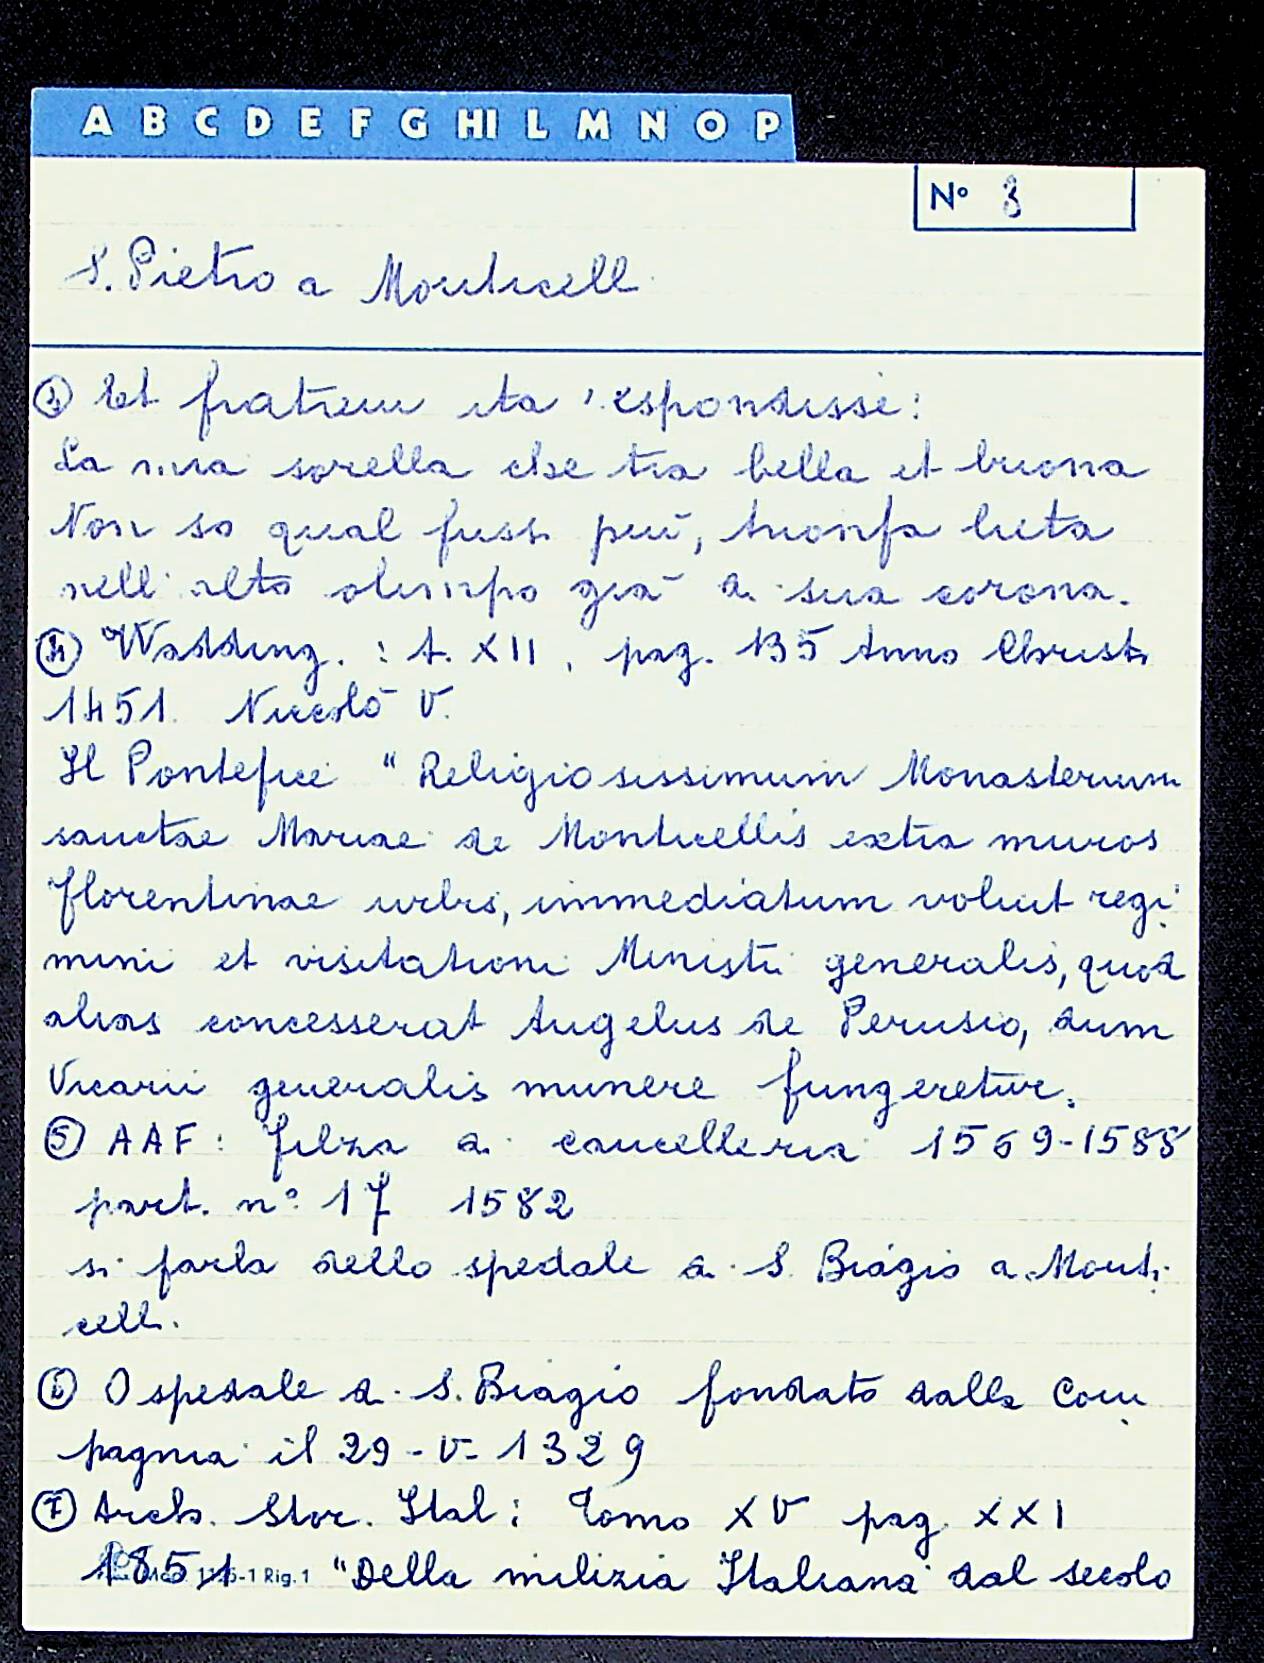 A B C D E F G HI L M N O P
N° 3
S. Pietro a Monticelli
③ Et fratrem ita respondisse:
La mia sorella che tra bella et buona
Non so qual fusse più, trionfa lieta
nell'alto olimpo già di sua corona.
④ Wadding. : t. XII, pag. 135 Anno Christi
1451. Niccolò V.
Il Pontefice "Religiosissimum Monasterium
sanctae Mariae de Monticellis extra muros
florentinae urbis, immediatum voluit regi
mini et visitationi Ministri generalis, quod
alias concesserat Angelus de Perusio, dum
Vicarii generalis munere fungeretur.
⑤ AAF: filza di cancelleria 1569-1588
part. n° 17 1582
si parla dello spedale di S. Biagio a Monti
celli.
⑥ Ospedale di S. Biagio fondato dalla Com
pagnia il 29-V-1329
⑦ Arch. Stor. Ital: Tomo XV pag. XXI
1851 "Della milizia Italiana dal secolo